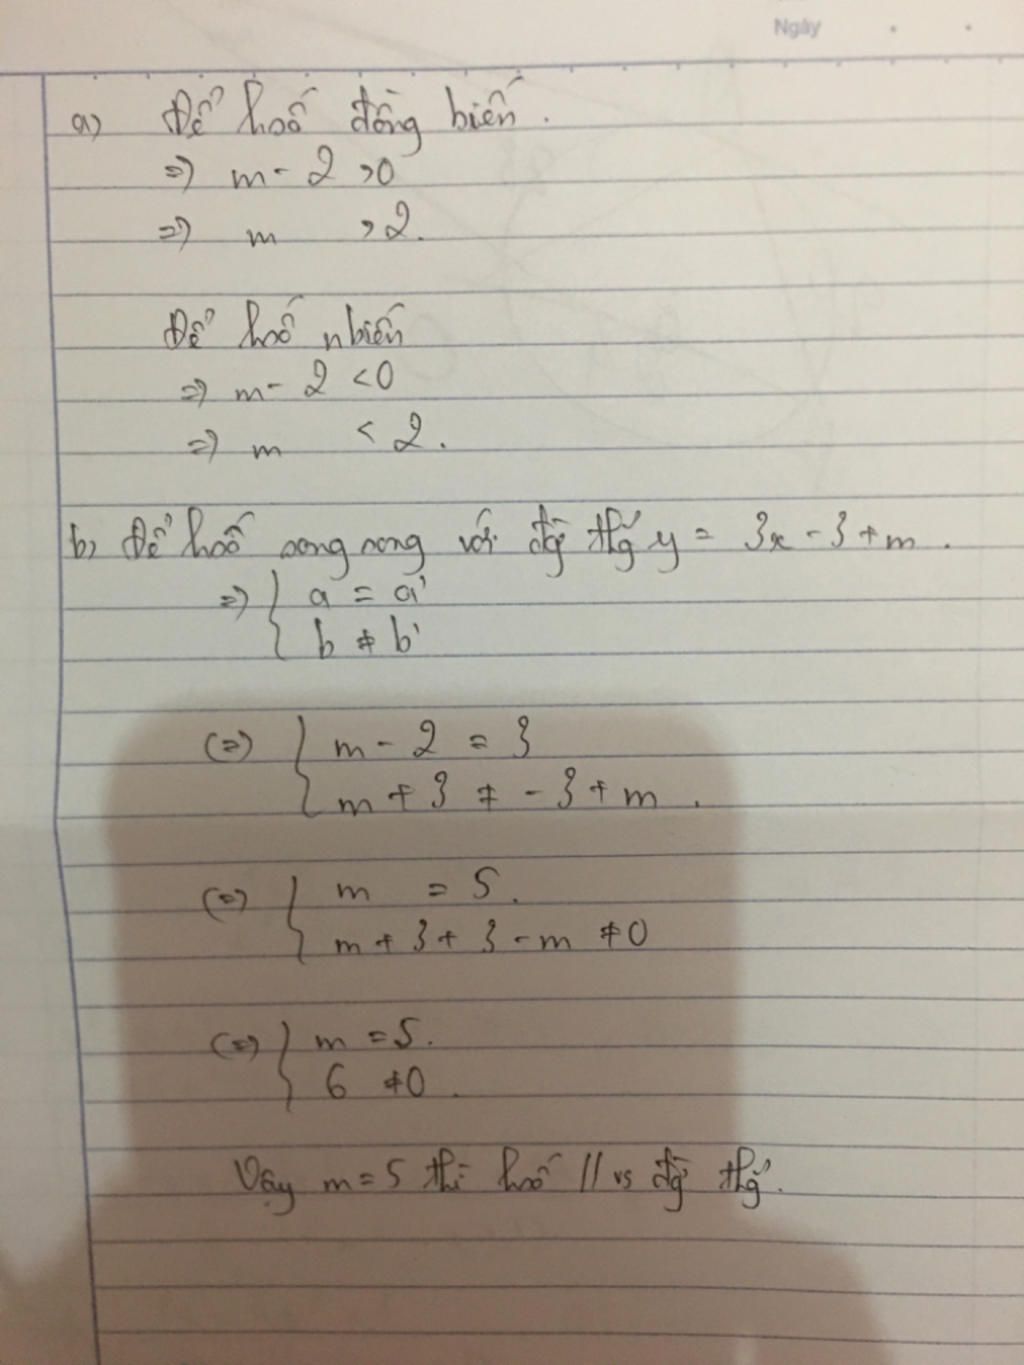 Ngày
a) Để hsố đồng biến.
=> m - 2 > 0
=> m > 2.
Để hsố nbiến
=> m - 2 < 0
=> m < 2.
b, Để hsố song song với đg thg y = 3x - 3 + m.
=> { a = a'
b ≠ b'
(=) { m - 2 = 3
m + 3 ≠ - 3 + m.
(=) { m = 5.
m + 3 + 3 - m ≠ 0
(=) { m = 5.
6 ≠ 0.
Vậy m = 5 thì hsố // vs đg thg.